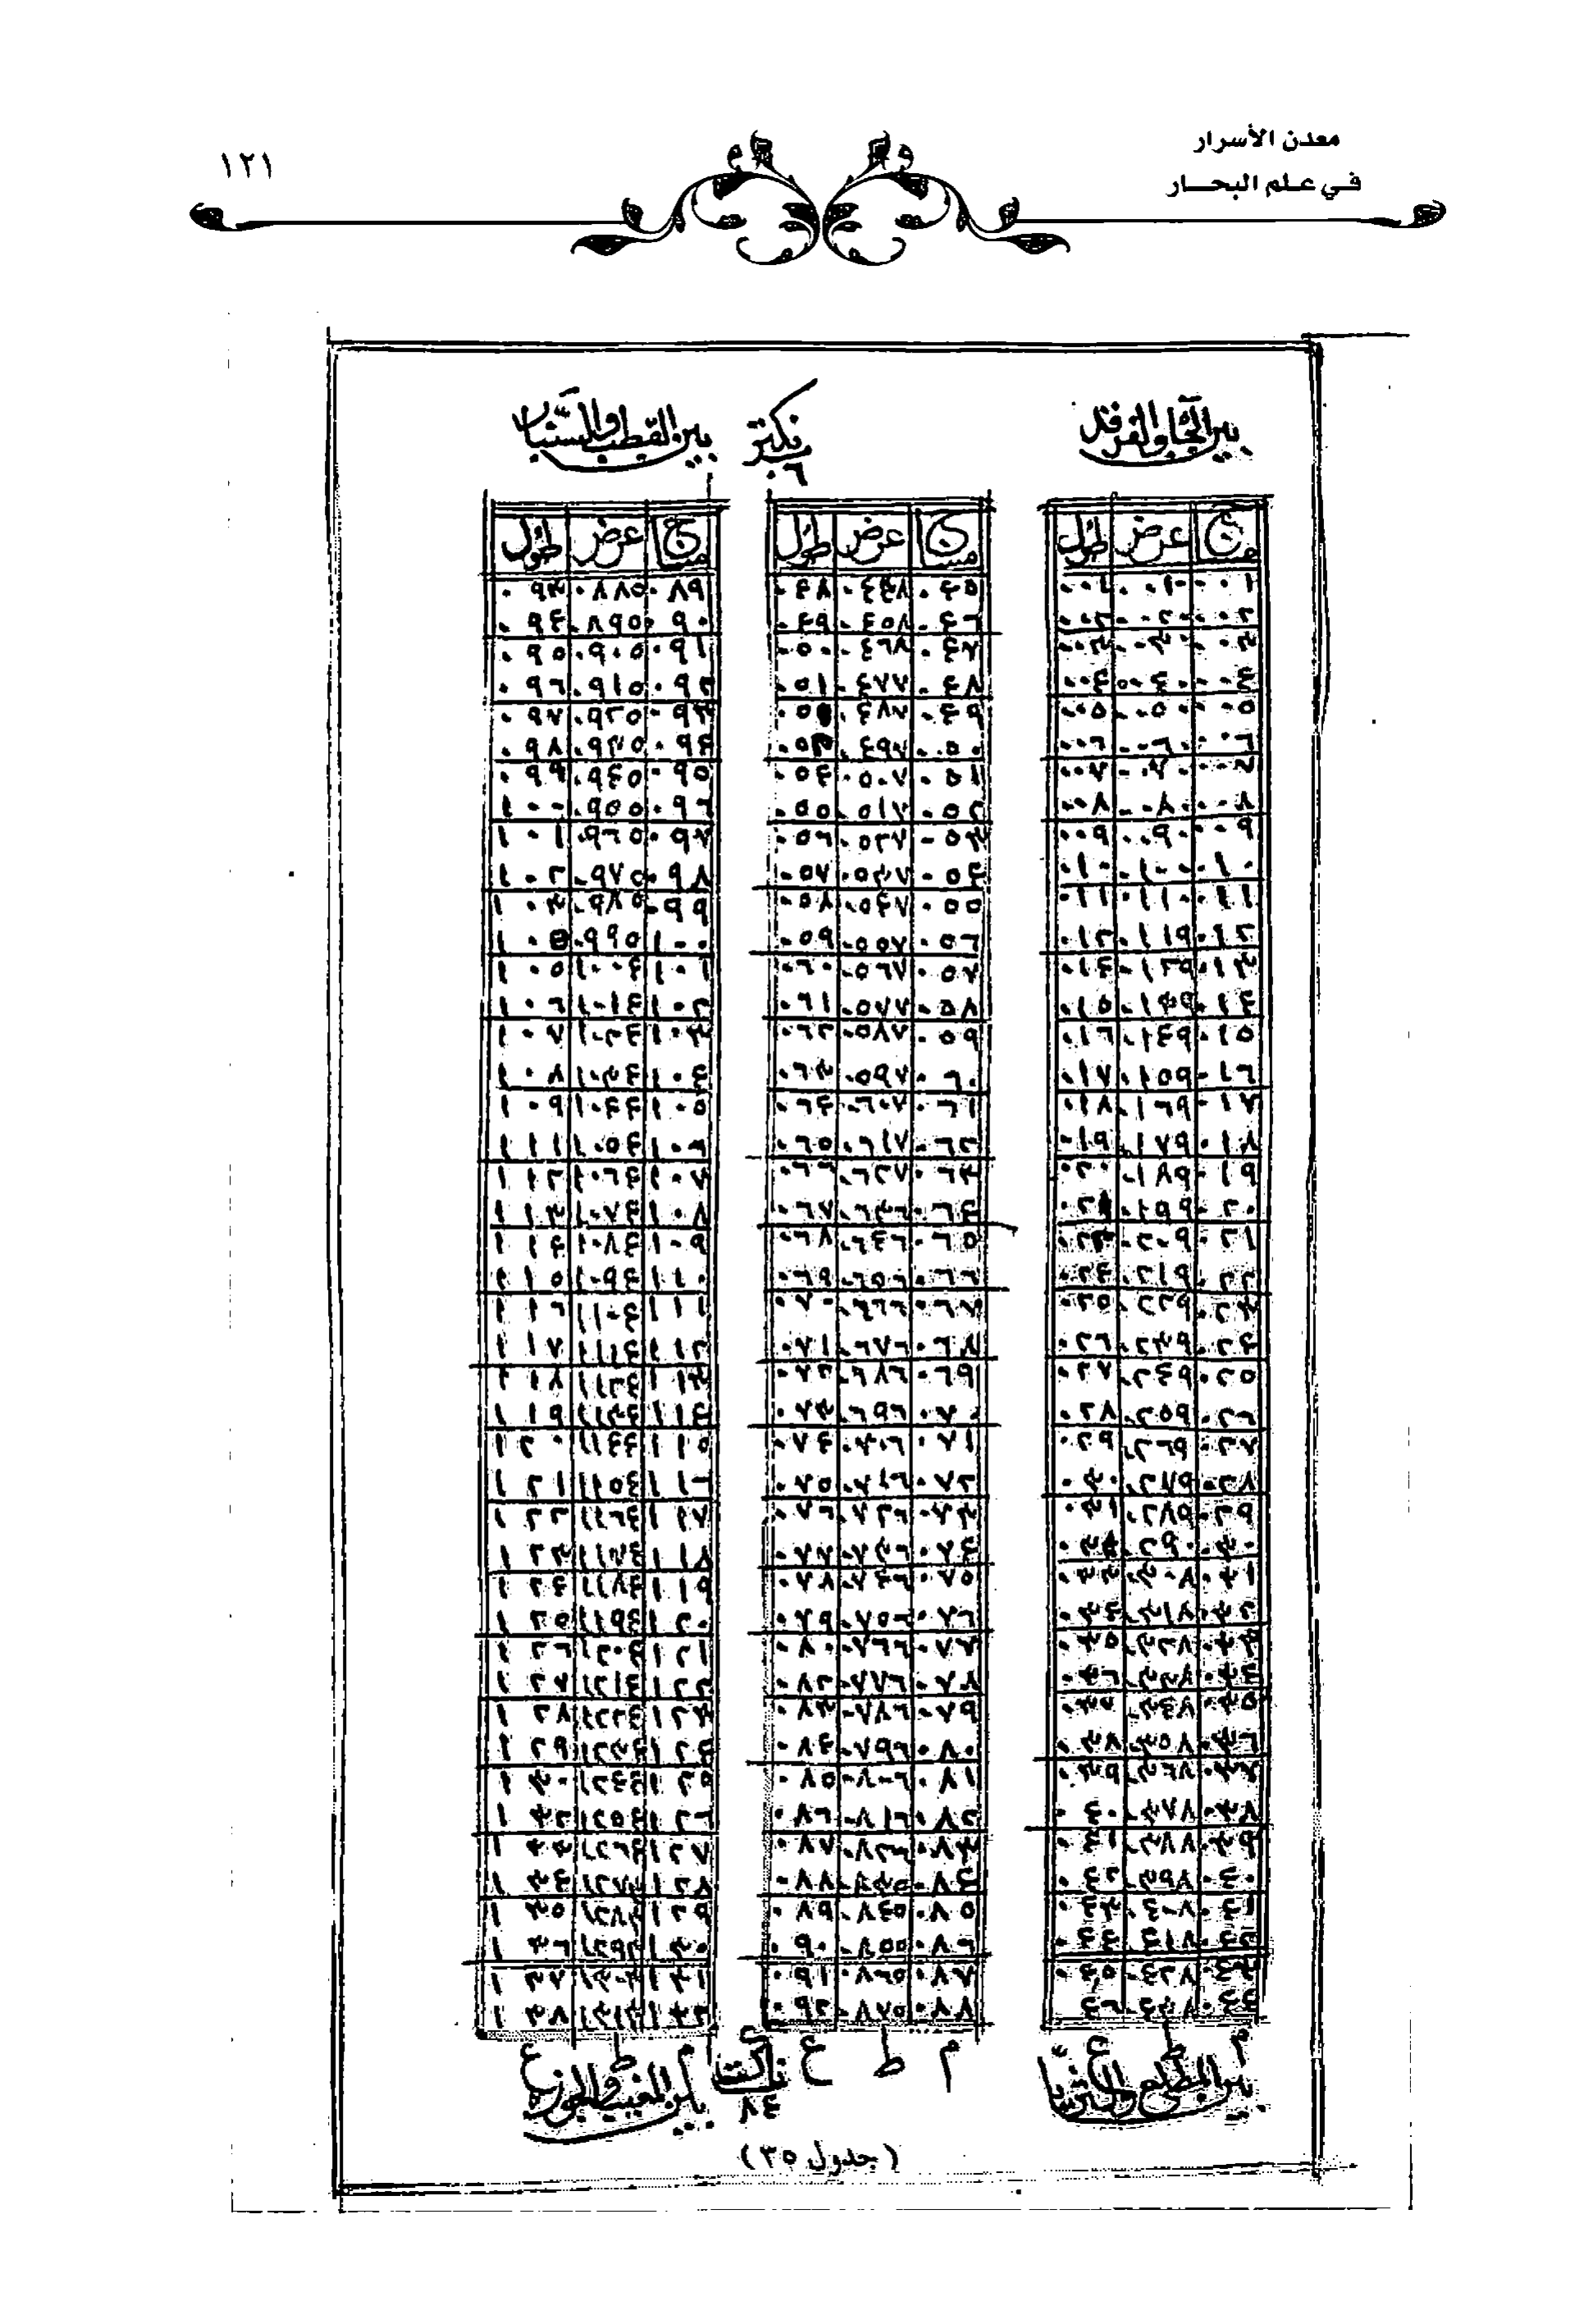 معدن الأسرار
في علم البحار
١٢١
بين الجاه والفرقد
نكتز ٦
بين القطب والسنبار
مساج عرض طول
٠٠١ ٠٠١٠ ٠٠١
٠٠٢ ٠٠٢٠ ٠٠٢
٠٠٣ ٠٠٣٠ ٠٠٣
٠٠٤ ٠٠٤٠ ٠٠٤
٠٠٥ ٠٠٥٠ ٠٠٥
٠٠٦ ٠٠٦٠ ٠٠٦
٠٠٧ ٠٠٧٠ ٠٠٧
٠٠٨ ٠٠٨٠ ٠٠٨
٠٠٩ ٠٠٩٠ ٠٠٩
٠١٠ ٠١٠٠ ٠١٠
٠١١ ٠١١٠ ٠١١
٠١٢ ٠١١٩ ٠١٢
٠١٣ ٠١٢٩ ٠١٤
٠١٤ ٠١٣٩ ٠١٥
٠١٥ ٠١٤٩ ٠١٦
٠١٦ ٠١٥٩ ٠١٧
٠١٧ ٠١٦٩ ٠١٨
٠١٨ ٠١٧٩ ٠١٩
٠١٩ ٠١٨٩ ٠٢٠
٠٢٠ ٠١٩٩
٠٢١ ٠٢٠٩ ٠٢٣
٠٢٢ ٠٢١٩ ٠٢٤
٠٢٣ ٠٢٢٩ ٠٢٥
٠٢٤ ٠٢٣٩ ٠٢٦
٠٢٥ ٠٢٤٩ ٠٢٧
٠٢٦ ٠٢٥٩ ٠٢٨
٠٢٧ ٠٢٦٩ ٠٢٩
٠٢٨ ٠٢٧٩ ٠٣٠
٠٢٩ ٠٣١
٠٣٠
٠٣١ ٠٣٠٨ ٠٣٣
٠٣٢ ٠٣١٨ ٠٣٤
٠٣٣ ٠٣٢٨ ٠٣٥
٠٣٤ ٠٣٣٨ ٠٣٦
٠٣٥ ٠٣٤٨ ٠٣٧
٠٣٦ ٠٣٥٨ ٠٣٨
٠٣٧ ٠٣٦٨ ٠٣٩
٠٣٨ ٠٣٧٨ ٠٤٠
٠٣٩ ٠٣٨٨ ٠٤١
٠٤٠ ٠٣٩٨ ٠٤٢
٠٤١ ٠٤٠٨ ٠٤٣
٠٤٢ ٠٤١٨ ٠٤٤
٠٤٣ ٠٤٢٨ ٠٤٥
٠٤٤ ٠٤٣٨ ٠٤٦
مساج عرض طول
٠٤٥ ٠٤٤٨ ٠٤٨
٠٤٦ ٠٤٥٨ ٠٤٩
٠٤٧ ٠٤٦٨ ٠٥٠
٠٤٨ ٠٤٧٧ ٠٥١
٠٤٩ ٠٤٨٧ ٠٥٢
٠٥٠ ٠٤٩٧ ٠٥٣
٠٥١ ٠٥٠٧ ٠٥٤
٠٥٢ ٠٥١٧ ٠٥٥
٠٥٣ ٠٥٢٧ ٠٥٦
٠٥٤ ٠٥٣٧ ٠٥٧
٠٥٥ ٠٥٤٧ ٠٥٨
٠٥٦ ٠٥٥٧ ٠٥٩
٠٥٧ ٠٥٦٧ ٠٦٠
٠٥٨ ٠٥٧٧ ٠٦١
٠٥٩ ٠٥٨٧ ٠٦٢
٠٦٠ ٠٥٩٧ ٠٦٣
٠٦١ ٠٦٠٧ ٠٦٤
٠٦٢ ٠٦١٧ ٠٦٥
٠٦٣ ٠٦٢٧ ٠٦٦
٠٦٤ ٠٦٣٦ ٠٦٧
٠٦٥ ٠٦٤٦ ٠٦٨
٠٦٦ ٠٦٥٦ ٠٦٩
٠٦٧ ٠٦٦٦ ٠٧٠
٠٦٨ ٠٦٧٦ ٠٧١
٠٦٩ ٠٦٨٦ ٠٧٢
٠٧٠ ٠٦٩٦ ٠٧٣
٠٧١ ٠٧٠٦ ٠٧٤
٠٧٢ ٠٧١٦ ٠٧٥
٠٧٣ ٠٧٢٦ ٠٧٦
٠٧٤ ٠٧٣٦ ٠٧٧
٠٧٥ ٠٧٤٦ ٠٧٨
٠٧٦ ٠٧٥٦ ٠٧٩
٠٧٧ ٠٧٦٦ ٠٨٠
٠٧٨ ٠٧٧٦ ٠٨٢
٠٧٩ ٠٧٨٦ ٠٨٣
٠٨٠ ٠٧٩٦ ٠٨٤
٠٨١ ٠٨٠٦ ٠٨٥
٠٨٢ ٠٨١٦ ٠٨٦
٠٨٣ ٠٨٢٦ ٠٨٧
٠٨٤ ٠٨٣٥ ٠٨٨
٠٨٥ ٠٨٤٥ ٠٨٩
٠٨٦ ٠٨٥٥ ٠٩٠
٠٨٧ ٠٨٦٥ ٠٩١
٠٨٨ ٠٨٧٥ ٠٩٢
مساج عرض طول
٠٨٩ ٠٨٨٥ ٠٩٣
٠٩٠ ٠٨٩٥ ٠٩٤
٠٩١ ٠٩٠٥ ٠٩٥
٠٩٢ ٠٩١٥ ٠٩٦
٠٩٣ ٠٩٢٥ ٠٩٧
٠٩٤ ٠٩٣٥ ٠٩٨
٠٩٥ ٠٩٤٥ ٠٩٩
٠٩٦ ٠٩٥٥ ١٠٠
٠٩٧ ٠٩٦٥ ١٠١
٠٩٨ ٠٩٧٥ ١٠٢
٠٩٩ ٠٩٨٥ ١٠٣
١٠٠ ٠٩٩٥
١٠١ ١٠٠٤ ١٠٥
١٠٢ ١٠١٤ ١٠٦
١٠٣ ١٠٢٤ ١٠٧
١٠٤ ١٠٣٤ ١٠٨
١٠٥ ١٠٤٤ ١٠٩
١٠٦ ١٠٥٤ ١١١
١٠٧ ١٠٦٤ ١١٢
١٠٨ ١٠٧٤ ١١٣
١٠٩ ١٠٨٤ ١١٤
١١٠ ١٠٩٤ ١١٥
١١١ ١١٠٤ ١١٦
١١٢ ١١١٤ ١١٧
١١٣ ١١٢٤ ١١٨
١١٤ ١١٣٤ ١١٩
١١٥ ١١٤٤ ١٢٠
١١٦ ١١٥٤ ١٢١
١١٧ ١١٦٤ ١٢٢
١١٨ ١١٧٤ ١٢٣
١١٩ ١١٨٤ ١٢٤
١٢٠ ١١٩٤ ١٢٥
١٢١ ١٢٠٤ ١٢٦
١٢٢ ١٢١٤ ١٢٧
١٢٣ ١٢٢٤ ١٢٨
١٢٤ ١٢٣٤ ١٢٩
١٢٥ ١٢٤٤ ١٣٠
١٢٦ ١٢٥٤ ١٣٢
١٢٧ ١٢٦٤ ١٣٣
١٢٨ ١٢٧٣ ١٣٤
١٢٩ ١٢٨٣ ١٣٥
١٣٠ ١٢٩٣ ١٣٦
١٣١ ١٣٠٣ ١٣٧
١٣٢ ١٣١٣ ١٣٨
م ط ع
م ط ع
م ط ع
بين المطلعي والثريا
٨٤
بين المغيب والجوزه
(جدول ٣٥)